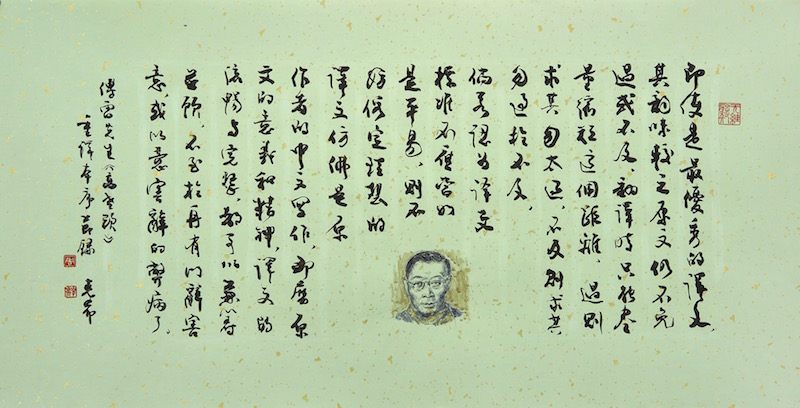 即使是最優秀的譯文，
其韵味較之原文仍不免
過或不及，翻譯時只能盡
量縮短這個距離，過則
求其勿太過，不及則求其
勿過於不及，
倘若認為譯文
標准不應當如
是平易，則不
妨假定理想的
譯文仿佛是原
作者的中文寫作，那麼原
文的意義和精神，譯文的
流暢与完整，都可以兼籌
並顧，不至於再有以辭害
意，或以意害辭的弊病了。
傅雷先生《高老頭》
重譯本序節錄 克希